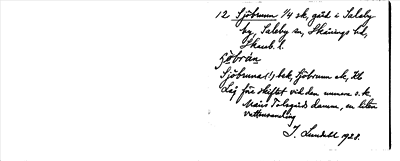 12 Sjöbrunn 1/4 sk, gård i Saleby
by, Saleby sn, Skånings hd,
Skarab. l.
Sjöbrunna(!) bek, Sjöbrunn ek,
Låg för skiftet vid den numera s.k.
damm, en liten
vattensamling
J. Lundahl 1928.